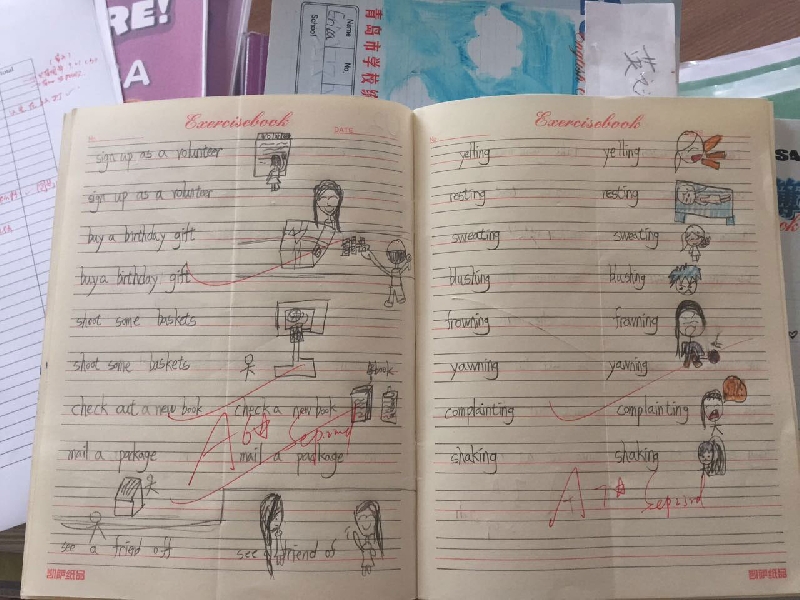 RE!
A
青岛市学校
Name
No.
School
Erica
Exercisebook
DATE
sign up as a volunteer
sign up as a volunteer
buy a birthday gift
buy a birthday gift
shoot some baskets
shoot some baskets
book
check out a new book check a new book
A 6 Sep 22nd
mail a package mail a package
see a friend off see friend of
Exercisebook
yelling yelling
resting resting
sweating sweating
blushing blushing
frowning frowning
yawning yawning
complainting complainting
shaking shaking
A+ 7 Sep 23rd